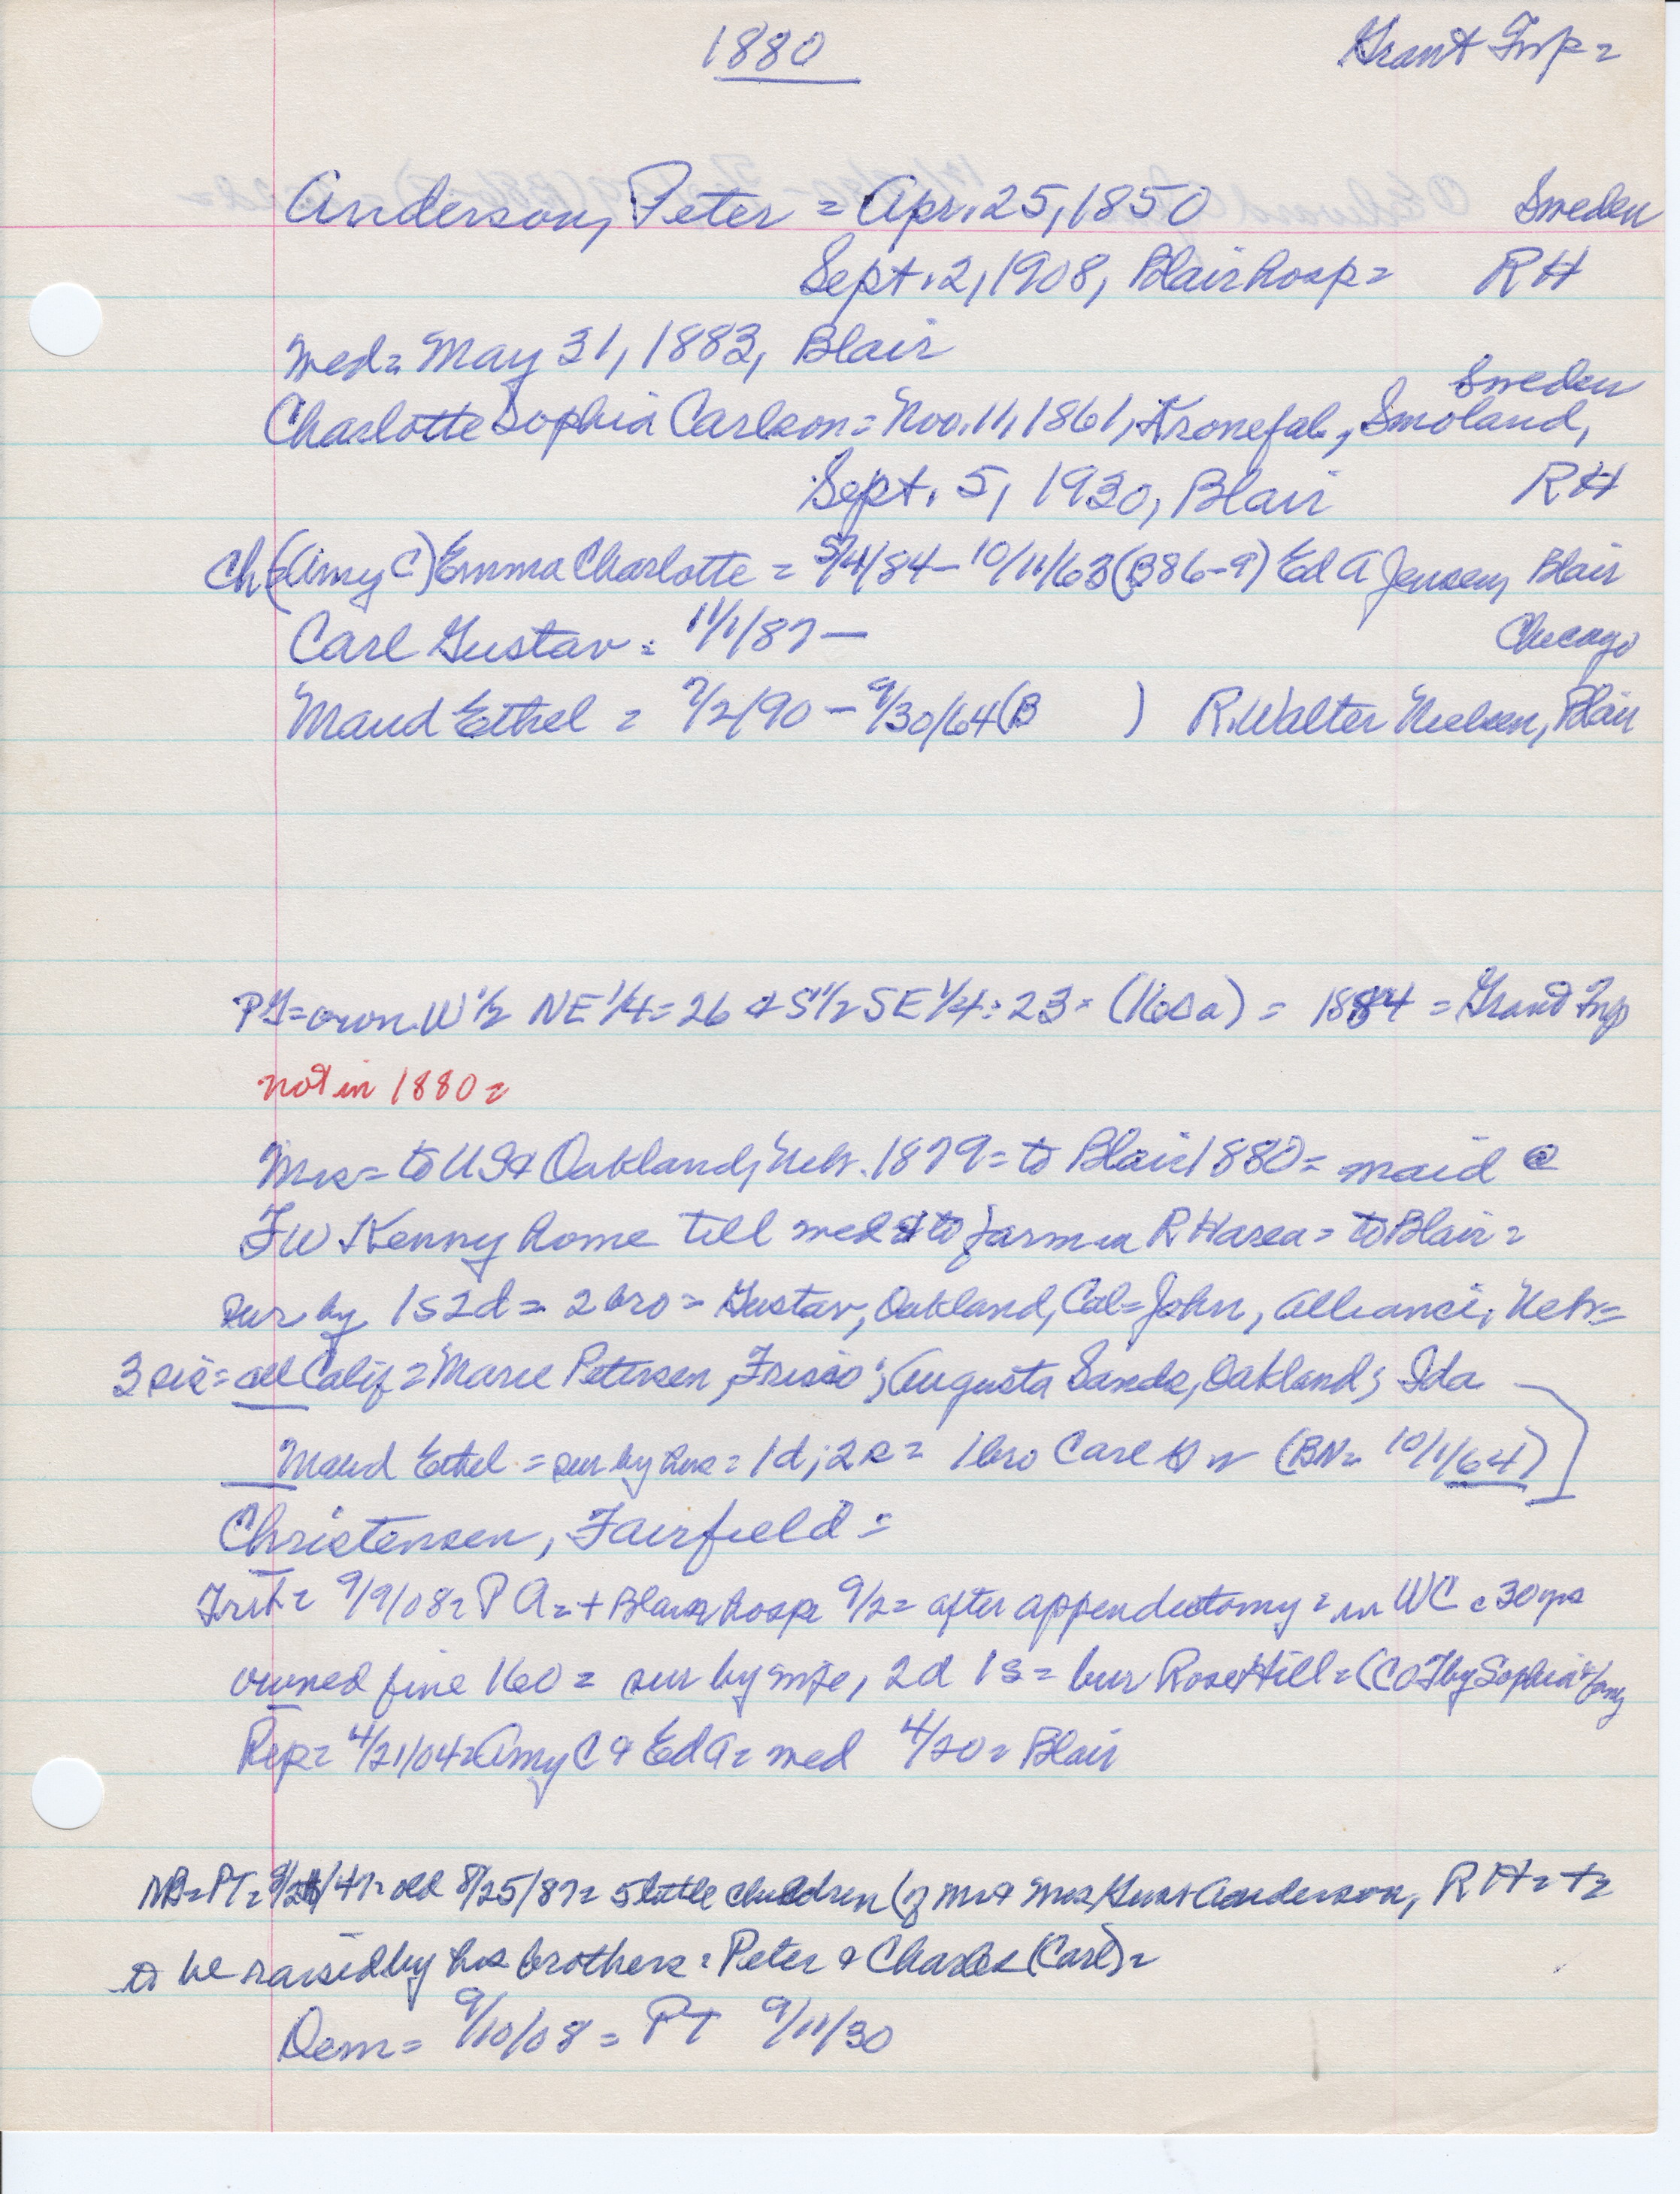 1880 Grant Twp =
Anderson, Peter = Apr. 25, 1850 Sweden
Sept. 2, 1908, Blair hosp = RH
med = May 31, 1883, Blair
Sweden
Charlotte Sophia Carlson = Nov. 11, 1861, Smoland,
Sept. 5, 1930, Blair RH
Ch = (Amy C) Emma Charlotte = 5/4/84 – 10/11/63 (B86-9) Ed A Jensen, Blair
Carl Gustav = 11/1/87 – Chicago
Maud Ethel = 7/2/90 – 9/30/64 (B ) R. Walter Nielsen, Blair
= own W 1/2 NE 1/4 = 26 & S 1/2 SE 1/4 = 23 = (160a) = 1884 = Grant Twp
not in 1880 =
Mrs = to US & Oakland, Nebr. 1879 = to Blair 1880 = maid @
FW Kenny home till med & to farm in RH area = to Blair =
sur by 1s 2d = 2 bro = Gustav, Oakland, Cal = John, Alliance, Nebr =
3 sis = all Calif = Marie Petersen, Frisco; Augusta Sands, Oakland; Ida
Maud Ethel = sur by hus = 1d; 2s = 1 bro Carl (BN = 10/1/64)
Christensen, Fairfield =
Trib = 9/9/08 = PA = + Blair hosp 9/2 = after appendectomy = in WC c 30 yrs
owned fine 160 = sur by wife, 2d 1s = bur Rose Hill = (COT by Sophia & fam)
Rep = 4/21/04 = Amy C & Ed A = med 4/20 = Blair
NB = PT = 47 = old 8/25/87 = 5 little children (of Mr & Mrs Anderson, RH = +=
to be raised by his brothers = Peter & Charles (Carl) =
Dem = 9/10/08 = PT 9/11/30